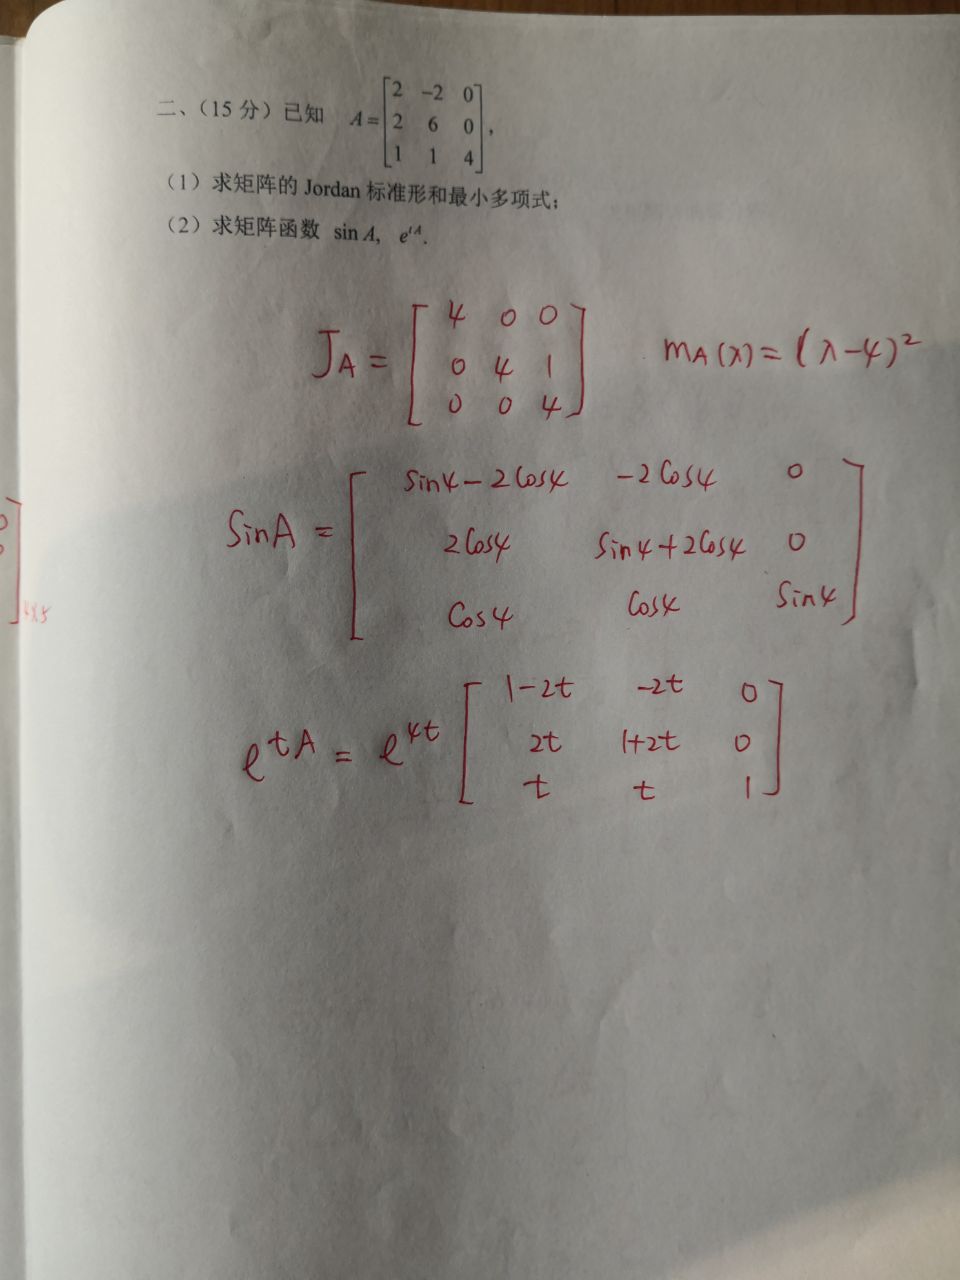 二、（15 分）已知 A = [2 -2 0; 2 6 0; 1 1 4],
（1）求矩阵的 Jordan 标准形和最小多项式;
（2）求矩阵函数 sin A, e^{tA}.
J_A = [4 0 0; 0 4 1; 0 0 4] m_A(λ) = (λ-4)^2
SinA = [Sin4-2Cos4 -2Cos4 0; 2Cos4 Sin4+2Cos4 0; Cos4 Cos4 Sin4]
e^{tA} = e^{4t} [1-2t -2t 0; 2t 1+2t 0; t t 1]